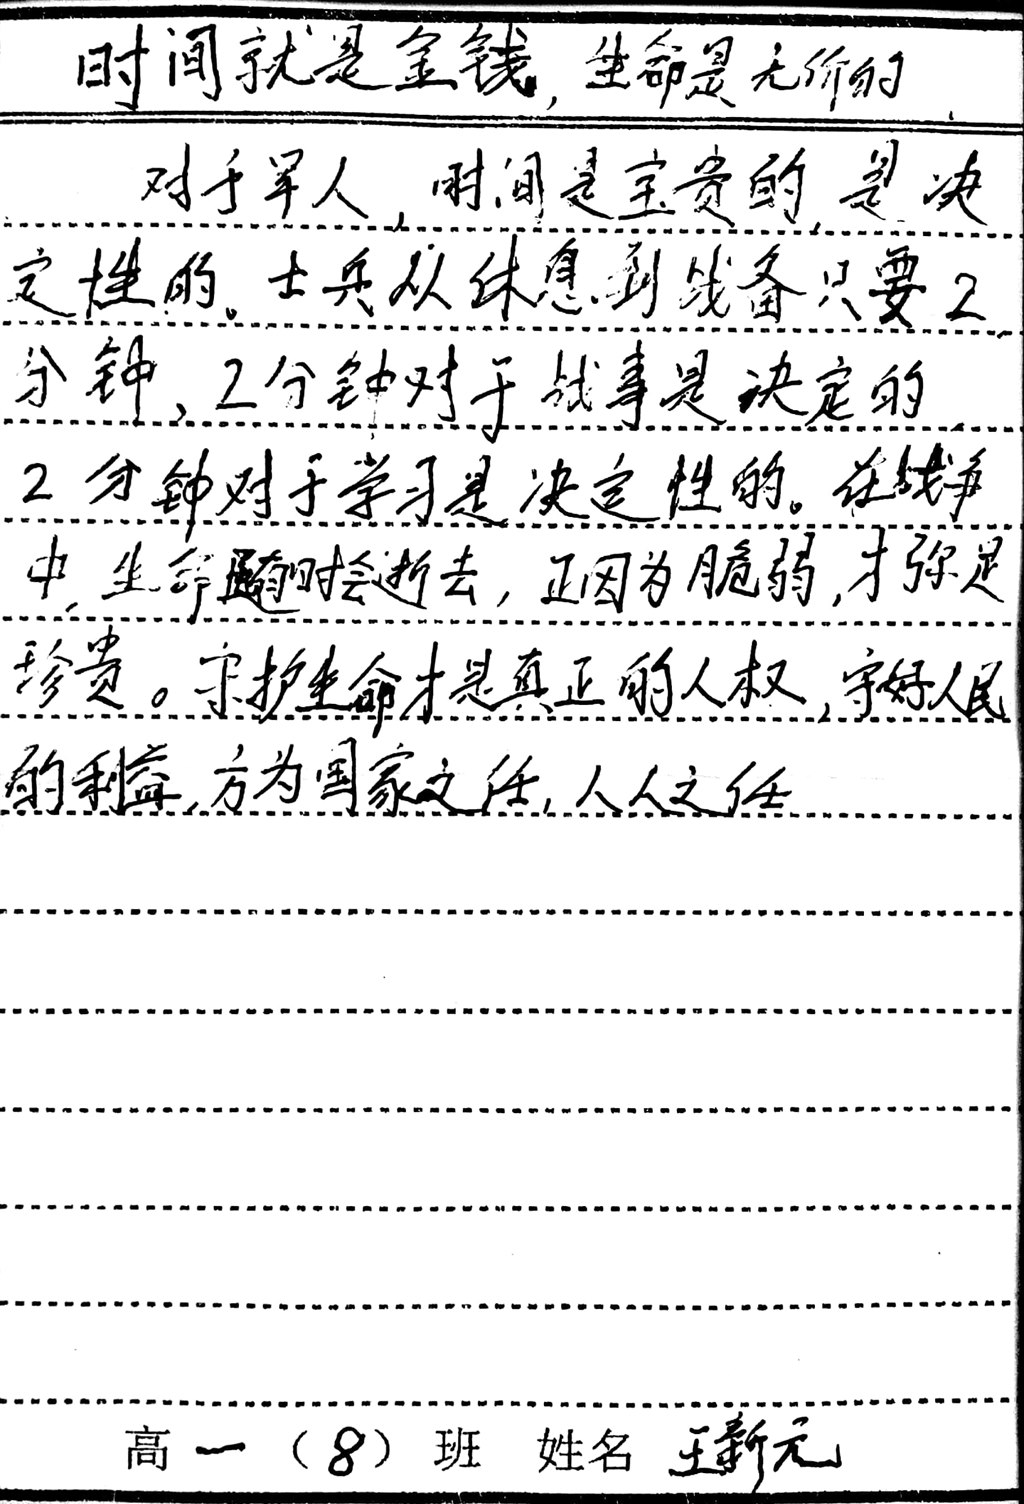 时间就是金钱,生命是无价的
对于军人,时间是宝贵的,是决
定性的。士兵从休息到战备只要2
分钟,2分钟对于战事是决定的,
2分钟对于学习是决定性的。在战争
中,生命随时会逝去,正因为脆弱,才弥足
珍贵。守护生命才是真正的人权,守好人民
的利益,方为国家之任,人人之任
高一(8)班 姓名 王新元